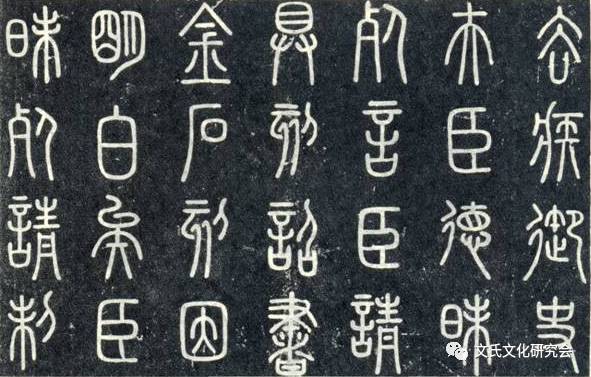 去疾御史
夫臣德昧
死言臣請
具刻詔書
金石刻因
明白矣臣
昧死請制
文氏文化研究会